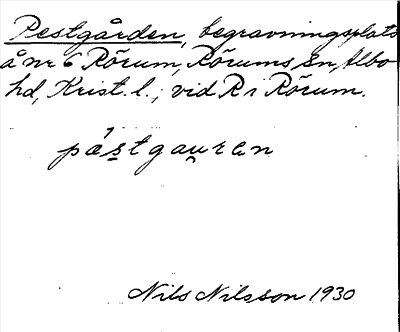 Pestgården, begravningsplats
å nr 6 Rörum, Rörums sn, Albo
hd, Krist. l., vid R i Rörum.
pæstgau̯ren
Nils Nilsson 1930